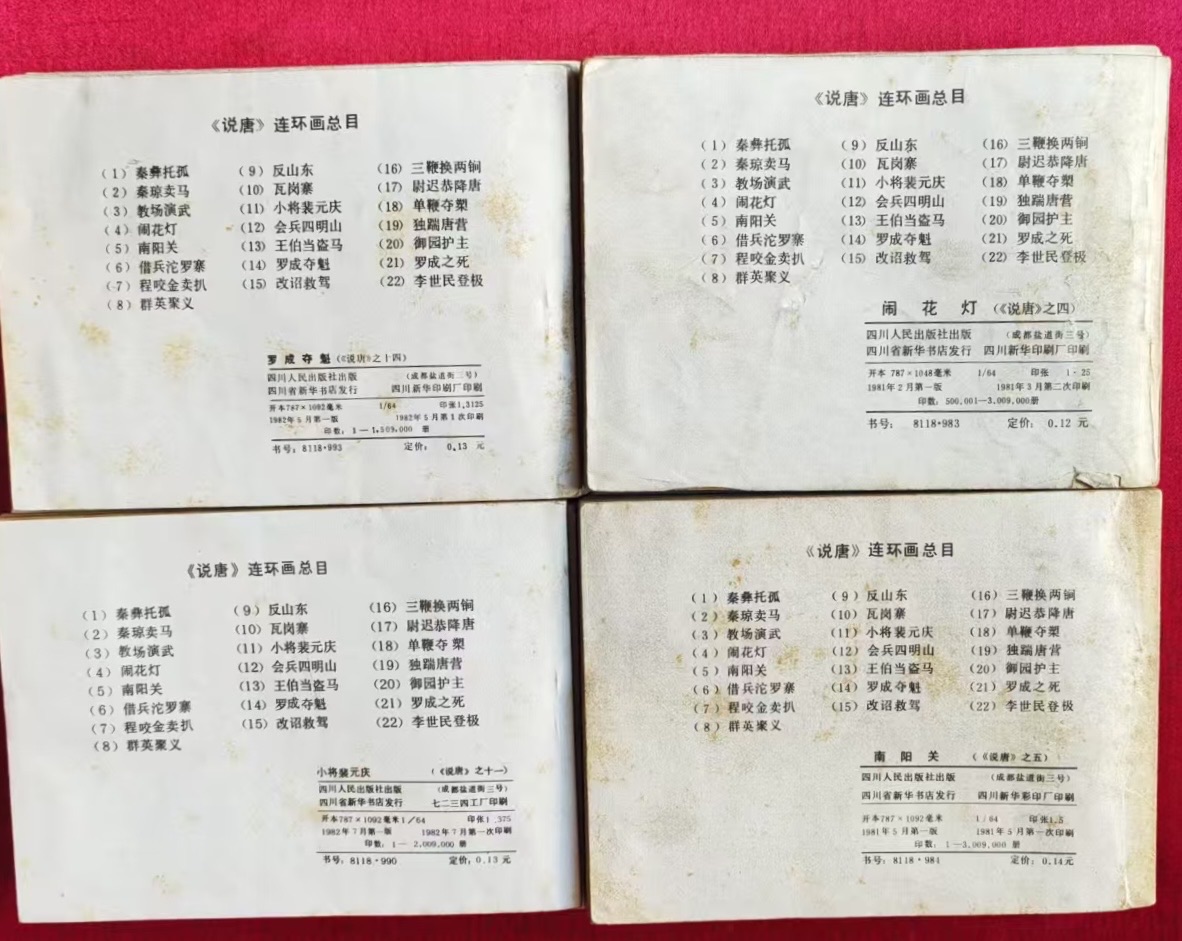 《说唐》连环画总目
(1) 秦彝托孤 (9) 反山东 (16) 三鞭换两锏
(2) 秦琼卖马 (10) 瓦岗寨 (17) 尉迟恭降唐
(3) 教场演武 (11) 小将裴元庆 (18) 单鞭夺槊
(4) 闹花灯 (12) 会兵四明山 (19) 独踹唐营
(5) 南阳关 (13) 王伯当盗马 (20) 御园护主
(6) 借兵沱罗寨 (14) 罗成夺魁 (21) 罗成之死
(7) 程咬金卖扒 (15) 改诏救驾 (22) 李世民登极
(8) 群英聚义
罗成夺魁 (《说唐》之十四)
四川人民出版社出版 (成都盐道街三号)
四川省新华书店发行 四川新华印刷厂印刷
开本787×1092毫米 1/64 印张1.3125
1982年5月第一版 1982年5月第1次印刷
印数: 1—1,509,000 册
书号: 8118·993 定价: 0.13 元
《说唐》连环画总目
(1) 秦彝托孤 (9) 反山东 (16) 三鞭换两锏
(2) 秦琼卖马 (10) 瓦岗寨 (17) 尉迟恭降唐
(3) 教场演武 (11) 小将裴元庆 (18) 单鞭夺槊
(4) 闹花灯 (12) 会兵四明山 (19) 独踹唐营
(5) 南阳关 (13) 王伯当盗马 (20) 御园护主
(6) 借兵沱罗寨 (14) 罗成夺魁 (21) 罗成之死
(7) 程咬金卖扒 (15) 改诏救驾 (22) 李世民登极
(8) 群英聚义
闹花灯 (《说唐》之四)
四川人民出版社出版 (成都盐道街三号)
四川省新华书店发行 四川新华印刷厂印刷
开本 787×1048毫米 1/64 印张 1·25
1981年2月第一版 1981年3月第二次印刷
印数: 500,001—3,009,000册
书号: 8118·983 定价: 0.12 元
《说唐》连环画总目
(1) 秦彝托孤 (9) 反山东 (16) 三鞭换两锏
(2) 秦琼卖马 (10) 瓦岗寨 (17) 尉迟恭降唐
(3) 教场演武 (11) 小将裴元庆 (18) 单鞭夺槊
(4) 闹花灯 (12) 会兵四明山 (19) 独踹唐营
(5) 南阳关 (13) 王伯当盗马 (20) 御园护主
(6) 借兵沱罗寨 (14) 罗成夺魁 (21) 罗成之死
(7) 程咬金卖扒 (15) 改诏救驾 (22) 李世民登极
(8) 群英聚义
小将裴元庆 (《说唐》之十一)
四川人民出版社出版 (成都盐道街三号)
四川省新华书店发行 七二三四工厂印刷
开本787×1092毫米1/64 印张1.375
1982年7月第一版 1982年7月第一次印刷
印数: 1—2,009,000 册
书号: 8118·990 定价: 0.13 元
《说唐》连环画总目
(1) 秦彝托孤 (9) 反山东 (16) 三鞭换两锏
(2) 秦琼卖马 (10) 瓦岗寨 (17) 尉迟恭降唐
(3) 教场演武 (11) 小将裴元庆 (18) 单鞭夺槊
(4) 闹花灯 (12) 会兵四明山 (19) 独踹唐营
(5) 南阳关 (13) 王伯当盗马 (20) 御园护主
(6) 借兵沱罗寨 (14) 罗成夺魁 (21) 罗成之死
(7) 程咬金卖扒 (15) 改诏救驾 (22) 李世民登极
(8) 群英聚义
南阳关 (《说唐》之五)
四川人民出版社出版 (成都盐道街三号)
四川省新华书店发行 四川新华彩印厂印刷
开本787×1092毫米 1/64 印张1.5
1981年5月第一版 1981年5月第一次印刷
印数: 1—3,009,000 册
书号: 8118·984 定价: 0.14元